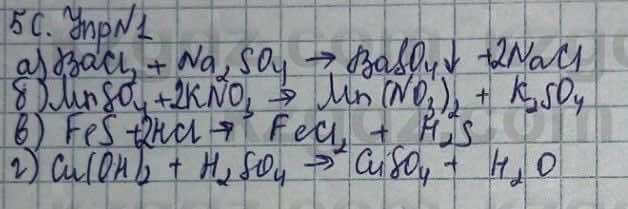 5С. Упр N1
а) BaCl₂ + Na₂SO₄ → BaSO₄↓ + 2NaCl
б) MnSO₄ + 2KNO₃ → Mn(NO₃)₂ + K₂SO₄
в) FeS + 2HCl → FeCl₂ + H₂S
г) Cu(OH)₂ + H₂SO₄ → CuSO₄ + H₂O